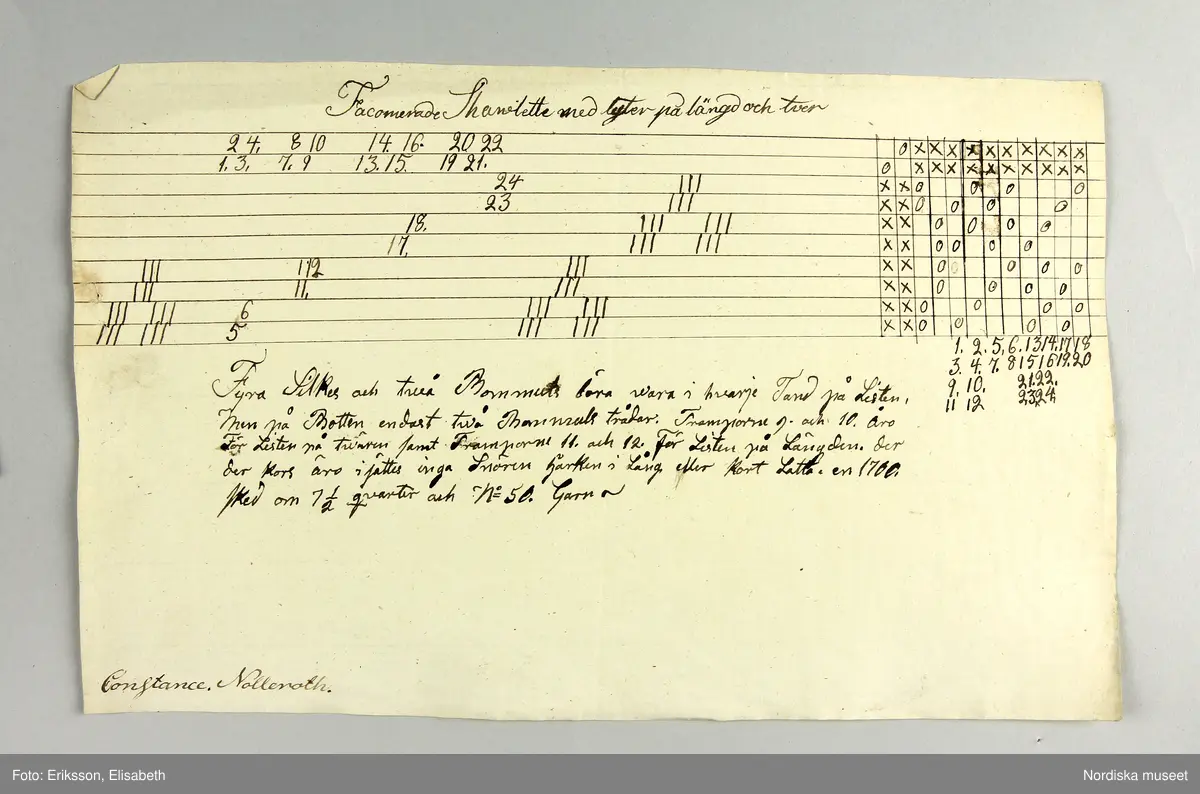 Facomerade Shawlette med lyster på längd och tver
2 4. 8 10 14. 16. 20 22
1. 3. 7. 9 13. 15. 19 21.
24
23
18.
17.
112
11.
6
5
1. 2. 5, 6. 13 14. 17 18
3. 4. 7. 8 15 16 19. 20
9. 10. 21. 22.
11 12 23 24
Fyra Silkes och twå Bommuls böra wara i hwarje Tand på Listen,
Men på Botten endast twå Bommuls trådar. Tramporne 9. och 10. äro
För Listen på twären samt Tramporne 11. och 12. För Listen på Längden. der
der kors äro i sättes inga Snören hwarken i Lång eller kort Latta. en 1700.
sked om 7 1/2 quarter och No 50. Garn
Constance. Nolleroth.
Foto: Eriksson, Elisabeth
Nordiska museet